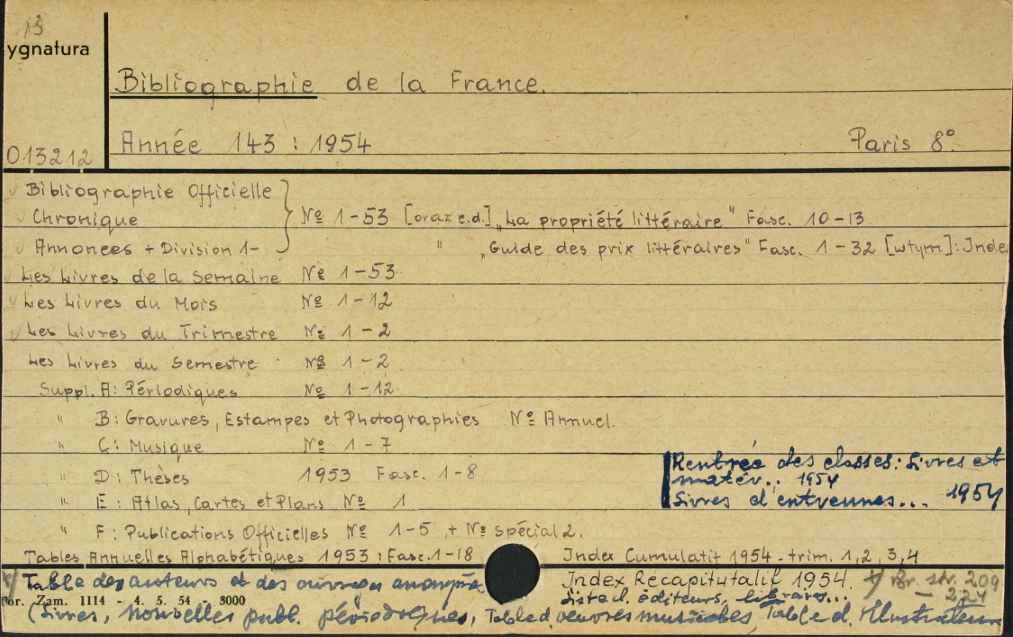 13
ygnatura
Bibliographie de la France.
013212
Année 143 : 1954 Paris 8°.
Bibliographie Officielle
Chronique Nº 1-53 [oraz c.d.] „La propriété littéraire" Fasc. 10-13
Annonces + Division 1- " „Guide des prix littéraires" Fasc. 1-32 [wtym]: Inde
Les Livres de la Semaine Nº 1-53
Les Livres du Mois Nº 1-12
Les Livres du Trimestre Nº 1-2
Les Livres du Semestre Nº 1-2
Suppl. A: Périodiques Nº 1-12
" B: Gravures, Estampes et Photographies Nº Annuel.
" C: Musique Nº 1-7
Rentrée des classes: Livres et
" D: Thèses 1953 Fasc. 1-8
matér.. 1954
" E: Atlas, Cartes et Plans Nº 1
Livres d'entvennes... 1954
" F: Publications Officielles Nº 1-5 + Nº spécial 2.
Tables Annuelles Alphabétiques 1953: Fasc. 1-18 Index Cumulatif 1954 - trim. 1, 2, 3, 4
x/ Table des auteurs et des ouvrages anonymes Index Récapitulatif 1954. x/ Br. str. 209
Zam. 1114 - 4. 5. 54 - 8000 Liste d. éditeurs, libraires... - 224
(Livres, nouvelles publ. périodiques, Table d. oeuvres musicales, Table d. Illustrateurs